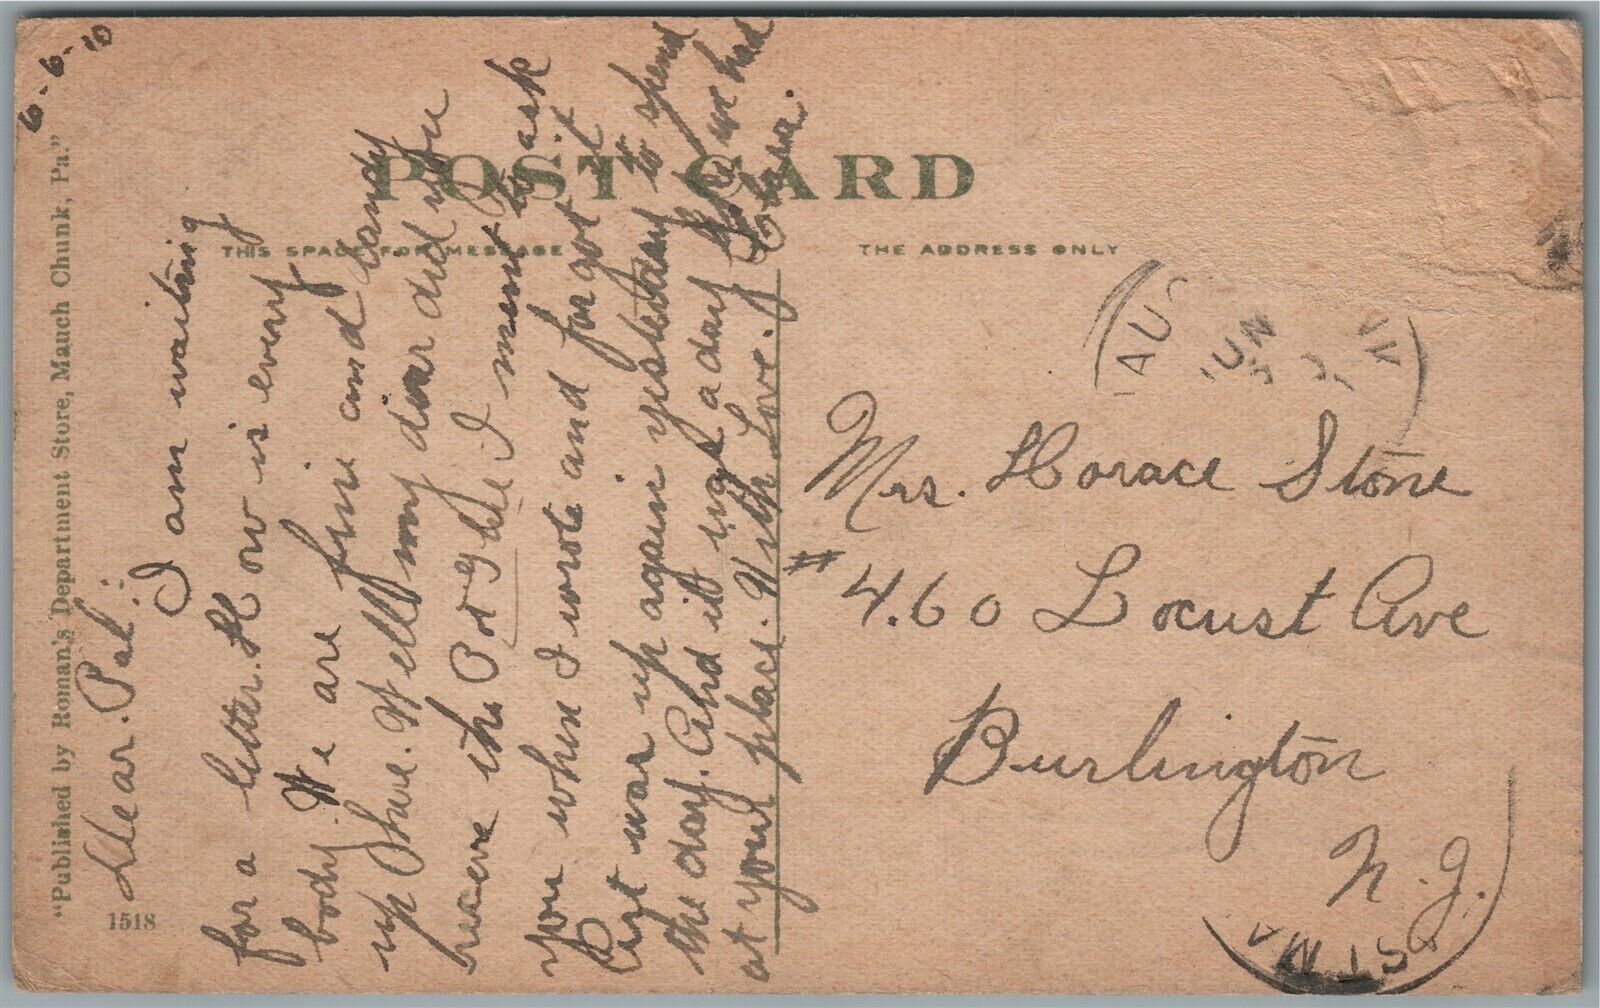 6-6-10
"Published by Roman's Department Store, Mauch Chunk, Pa."
1518
POST CARD
THIS SPACE FOR MESSAGE
THE ADDRESS ONLY
Dear. Pal.:
I am waiting
for a letter. How is every
body. We are fine and dandy
up here. Well my dear did you
receive the I ment to ask
you when I wrote and forgot it
was up again yesterday to spend
the day. And it was a day like we had
at your place. With Love. Clara.
Mrs. Horace Stone
#4.60 Locust Ave
Burlington
N.J.
JUN